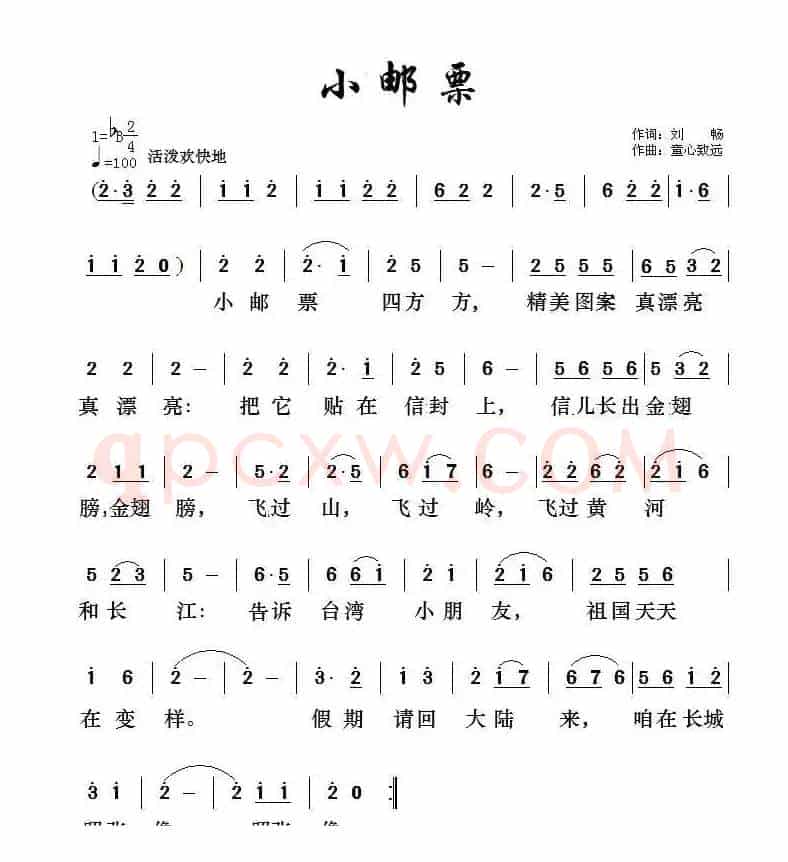 小邮票
1=♭B 2/4
作词：刘 畅
♩=100 活泼欢快地
作曲：童心致远
(2̇·3̇ 2̇ 2̇ | 1̇ 1̇ 2̇ | 1̇ 1̇ 2̇ 2̇ | 6 2 2 | 2·5 | 6 2̇ 2̇ | 1̇·6 |
1̇ 1̇ 2̇ 0) | 2̇ 2̇ | 2̇· 1̇ | 2̇ 5 | 5 – | 2̇ 5 5 5 | 6 5 3̇ 2̇ |
小 邮 票 四方 方， 精美图案 真漂亮
2 2 | 2̇ – | 2̇ 2̇ | 2̇·1̇ | 2̇ 5 | 6 – | 5 6 5 6 | 5 3̇ 2̇ |
真 漂 亮：把它 贴在 信封 上， 信儿长出金翅
2̇ 1̇ 1̇ | 2̇ – | 5·2̇ | 2̇·5 | 6 1̇ 7 | 6 – | 2̇ 2̇ 6 2̇ | 2̇ 1̇ 6 |
膀，金翅 膀， 飞过 山， 飞过 岭， 飞过黄 河
5 2̇ 3̇ | 2̇ – | 6·5 | 6 6 1̇ | 2̇ 1̇ | 2̇ 1̇ 6 | 2̇ 5 5 6 |
和长 江：告诉 台湾 小朋 友， 祖国天天
1̇ 6 | 2̇ – | 2̇ – | 3̇·2̇ | 1̇ 3̇ | 2̇ 1̇ 7 | 6 7 6 | 5 6 1̇ 2̇ |
在变 样。 假期 请回 大陆 来， 咱在长城
3̇ 1̇ | 2̇ – | 2̇ 1̇ 1̇ | 2̇ 0 :‖
qpcxw.COM